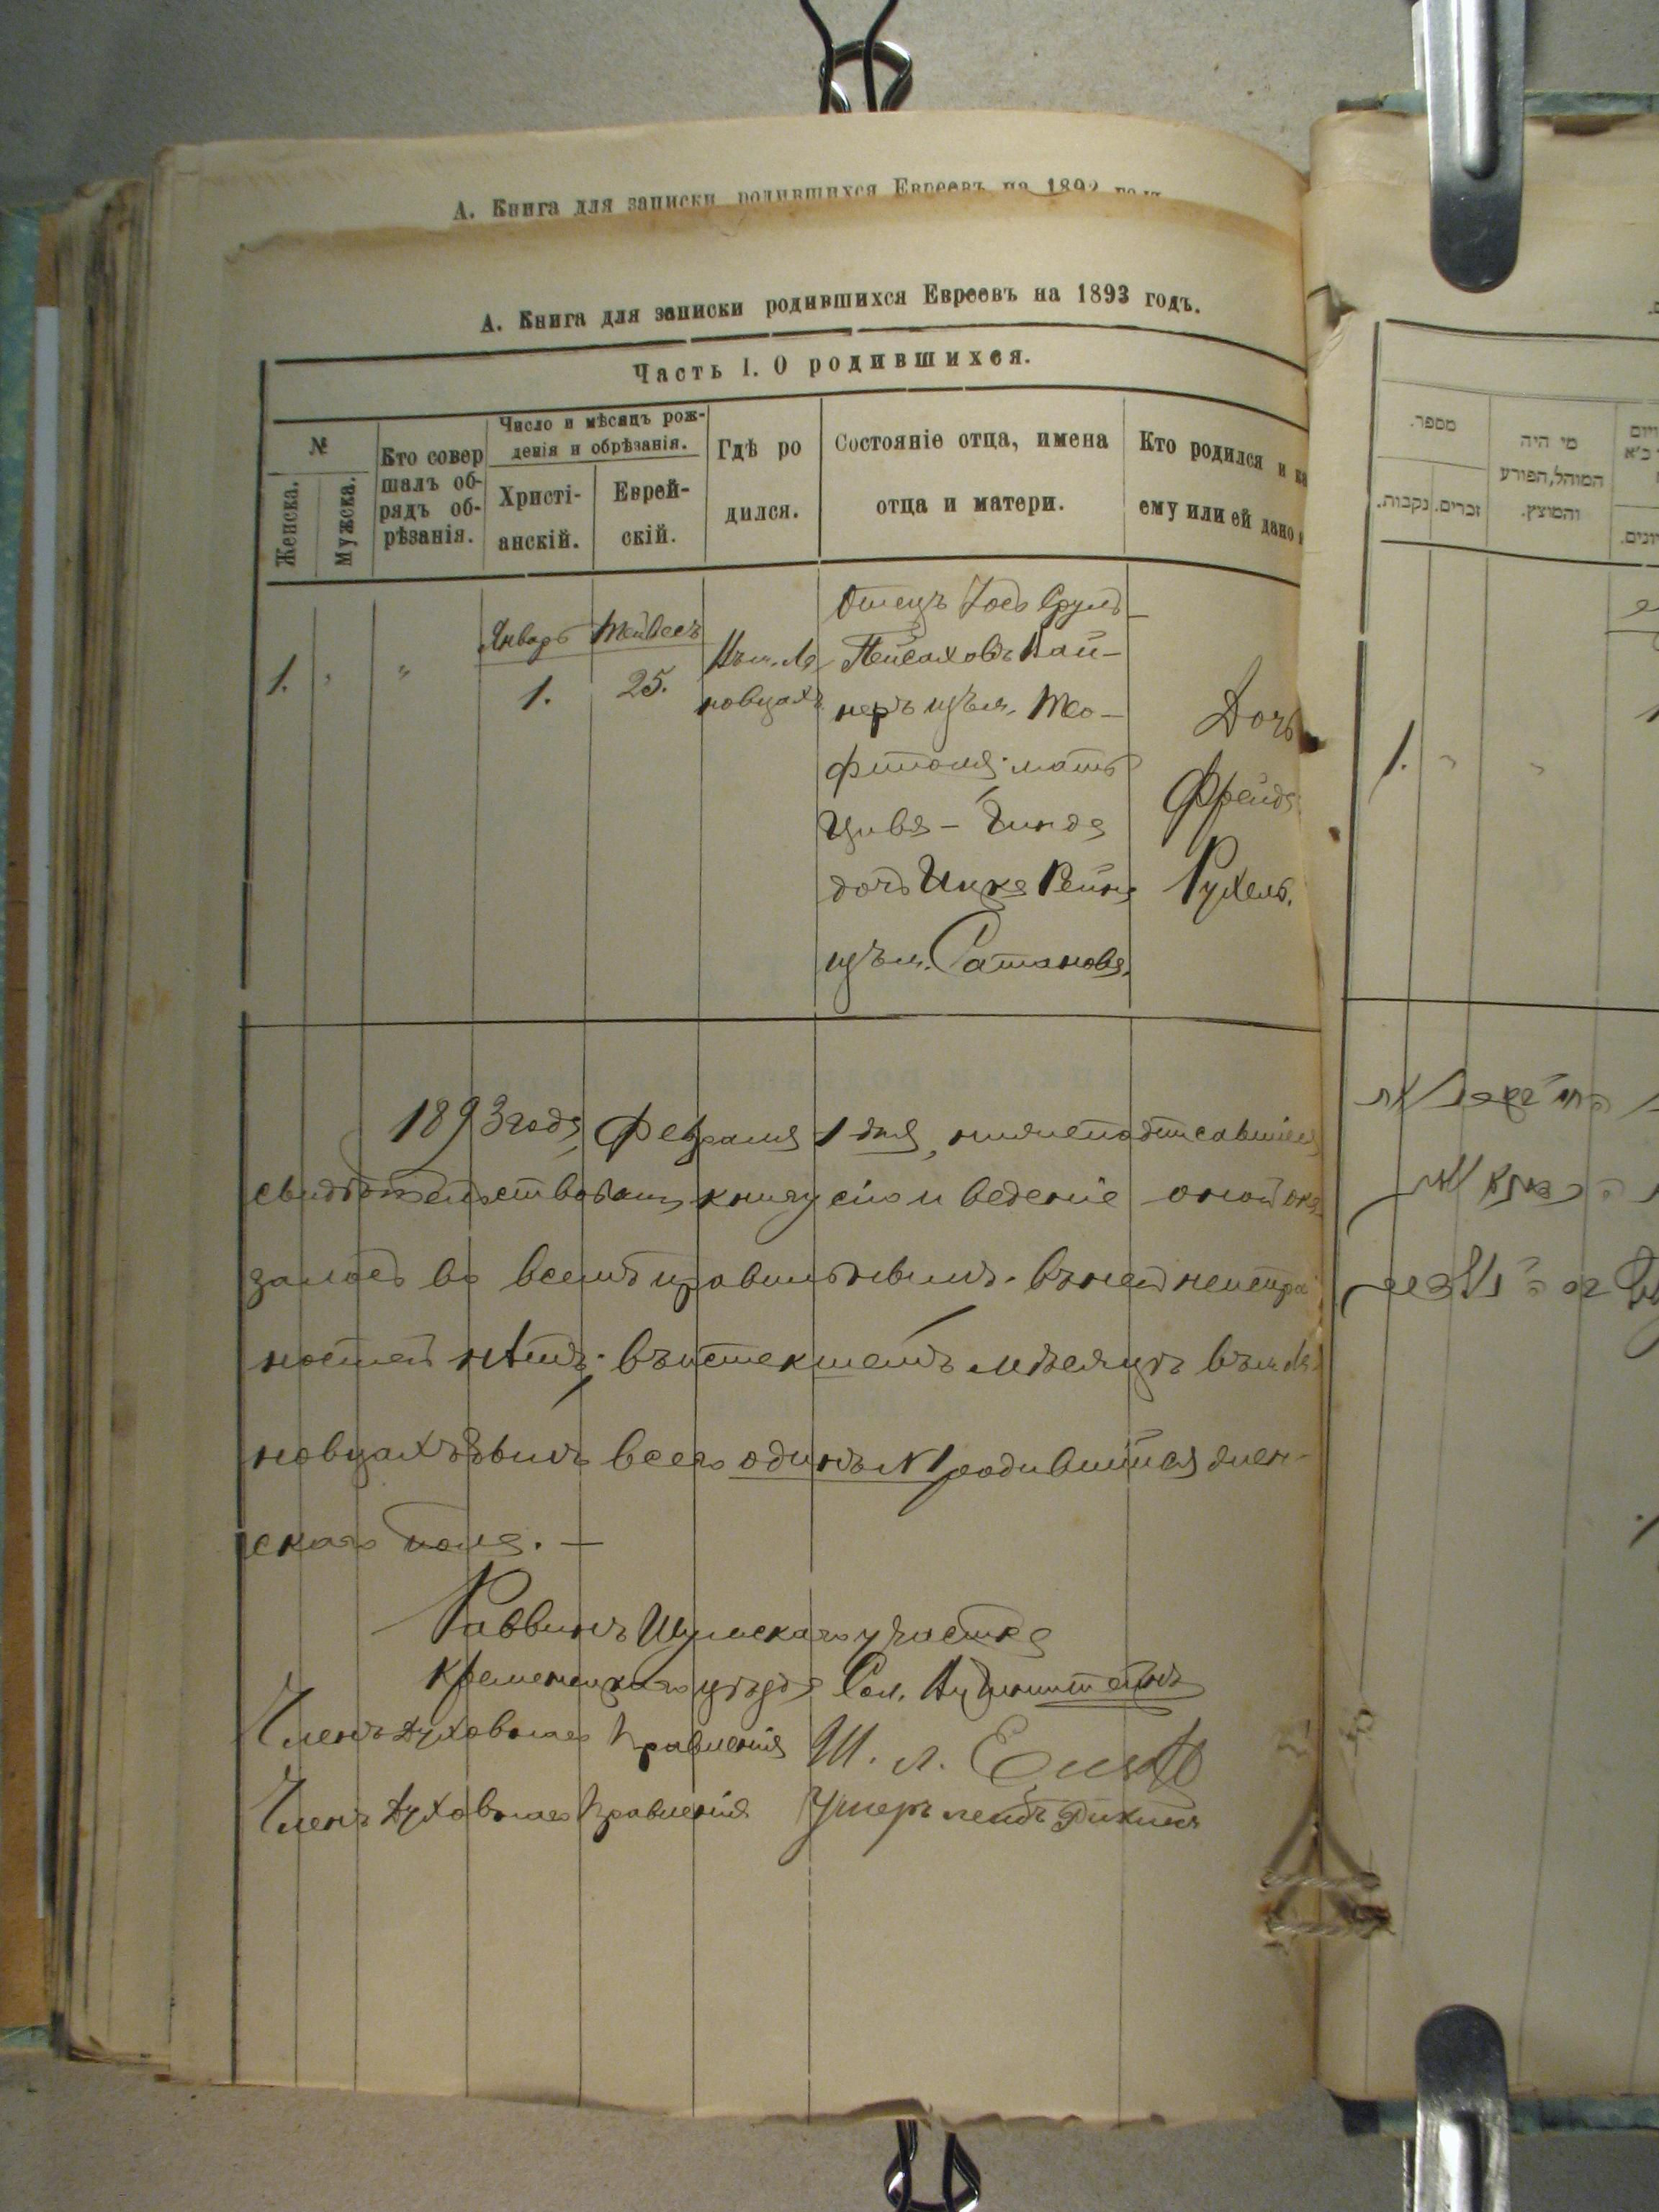 А. Книга для записки родившихся Евреевъ на 1892 годъ
А. Книга для записки родившихся Евреевъ на 1893 годъ.
Часть I. О родившихся.
№
Женска.
Мужска.
Кто совер
шалъ об-
рядъ об-
рѣзанія.
Число и мѣсяцъ рож-
денія и обрѣзанія.
Христі-
анскій.
Еврей-
скій.
Гдѣ ро
дился.
Состояніе отца, имена
отца и матери.
Кто родился и ка
ему или ей дано
מספר.
זכרים. נקבות.
מי היה
המוהל, הפורע
והמוצץ.
1. " "
Январь
1.
Тейвесъ
25.
Въ м. Ля
новцахъ
Отецъ Іось Сруль
Пейсаховъ Вай-
неръ изъ м. Тео-
фиполя; мать
Цивя - Гинда
дочь Ицка Вейна
изъ м. Сатанова.
Дочь
Фрейда
Рухель.
1.
1893 года, Февраля 1 дня, нижеподписавшіеся
свидѣтельствовали книгу сію и веденіе оной ока
залось во всемъ правильнымъ. въ ней неиспра
ностей нѣтъ; въ истекшемъ мѣсяцѣ въ м. Ля
новцахъ былъ всего одинъ № 1 родившійся жен-
скаго пола. —
Раввинъ Шумскаго участка
Кременецкаго уѣзда Сол.
Членъ Духовнаго Правленія Ш. Л.
Членъ Духовнаго Правленія Ушеръ